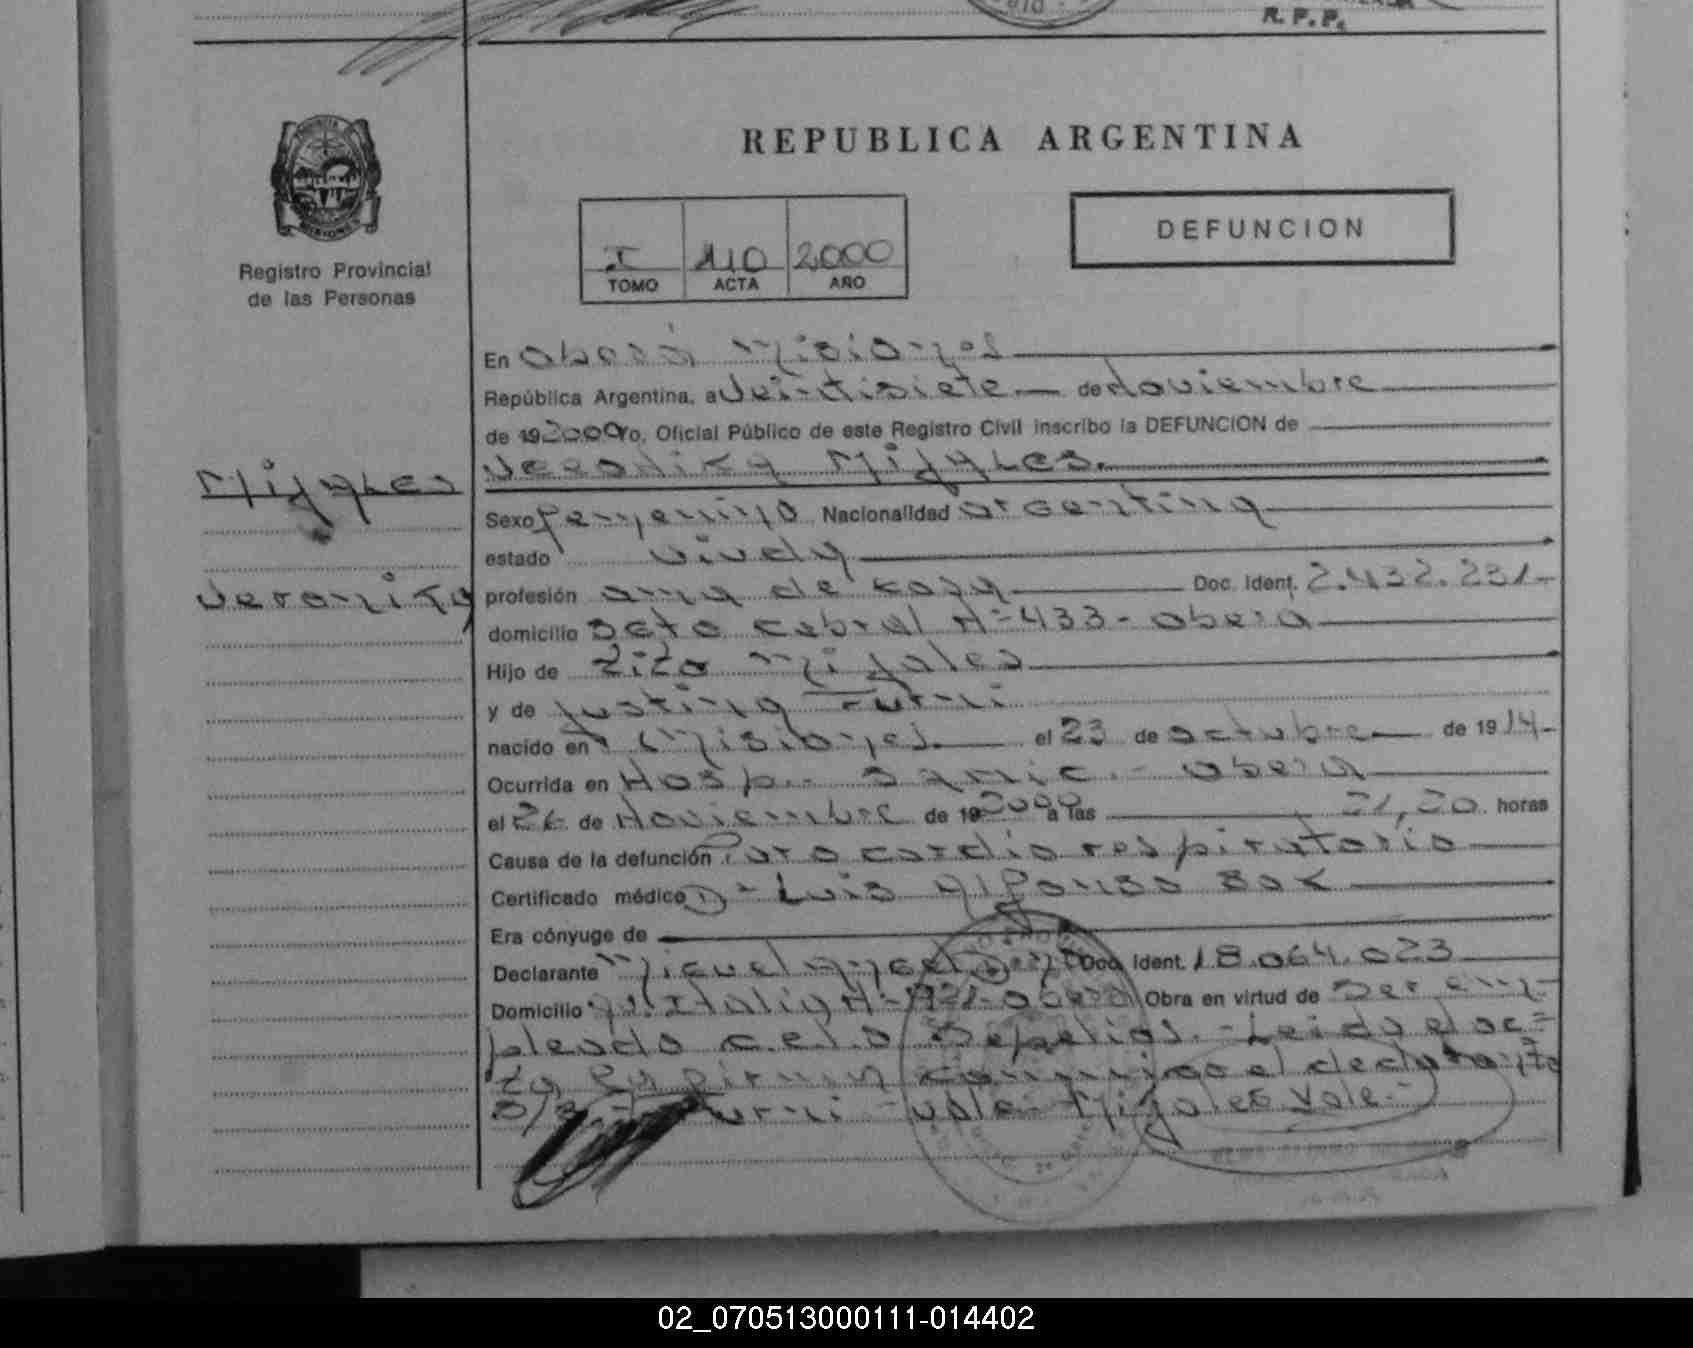 R. P. P.
REPUBLICA ARGENTINA
DEFUNCION
I 110 2000
TOMO ACTA AÑO
Registro Provincial
de las Personas
En oberá Misiones
República Argentina, a Veintisiete de Noviembre
de 19 2000 Yo, Oficial Público de este Registro Civil inscribo la DEFUNCION de
Veronika Mijales.
Mijales
Veronika
Sexo femenino Nacionalidad argentina
estado viuda
profesión ama de casa Doc. Ident. 2.432.231-
domicilio Sgto Cabral Nº 433 - oberá
Hijo de Mijales
y de Justina Turni
nacido en Misiones el 23 de octubre de 19 14-
Ocurrida en Hosp. Samic. - oberá
el 26 de Noviembre de 19 2000 a las 21,20 horas
Causa de la defunción Paro cardio respiratorio
Certificado médico Dr Luis Alfonso
Era cónyuge de
Declarante Miguel Angel Doc. Ident. 18.064.023
Domicilio Av. Italia Nº oberá Obra en virtud de Ser em-
pleado c.e.l.o Sepelios. - Leida el ac-
ta la firman conmigo el declarante
S/R Turni vale. Mijales Vale.-
02_070513000111-014402